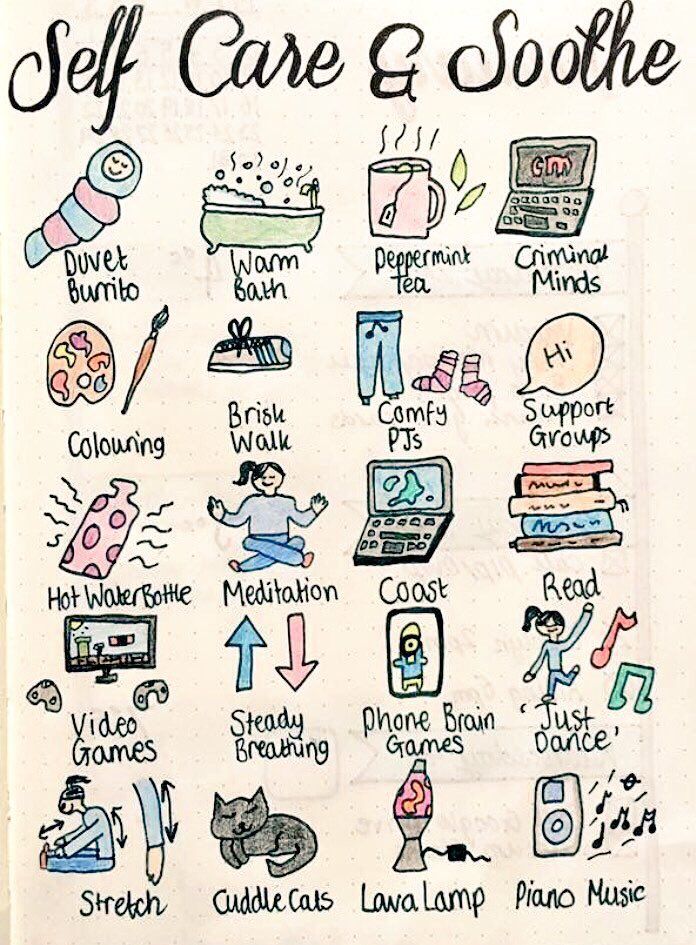 Self Care & Soothe
cm
Duvet
Burrito
Warm
Bath
Peppermint
Tea
Criminal
Minds
Hi
Colouring
Brisk
Walk
Comfy
PJs
Support
Groups
Hot Water Bottle
Meditation
Coast
Read
Video
Games
Steady
Breathing
Phone Brain
Games
'Just
Dance'
Stretch
Cuddle Cats
Lava Lamp
Piano Music